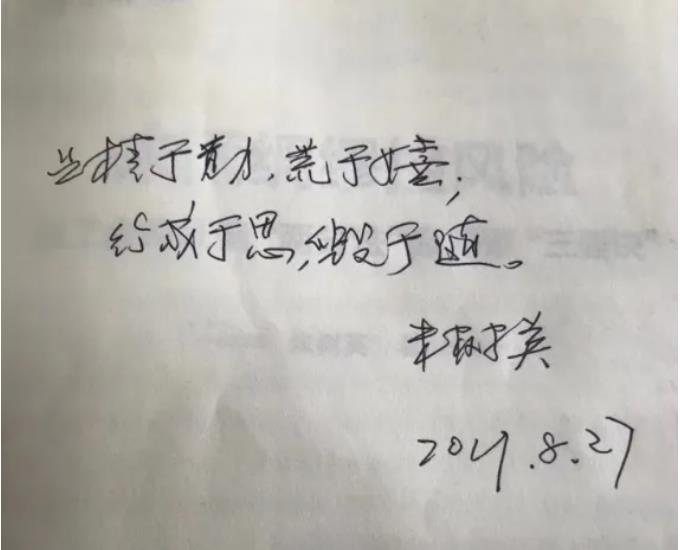 业精于勤，荒于嬉；
行成于思，毁于随。
树英
8.27